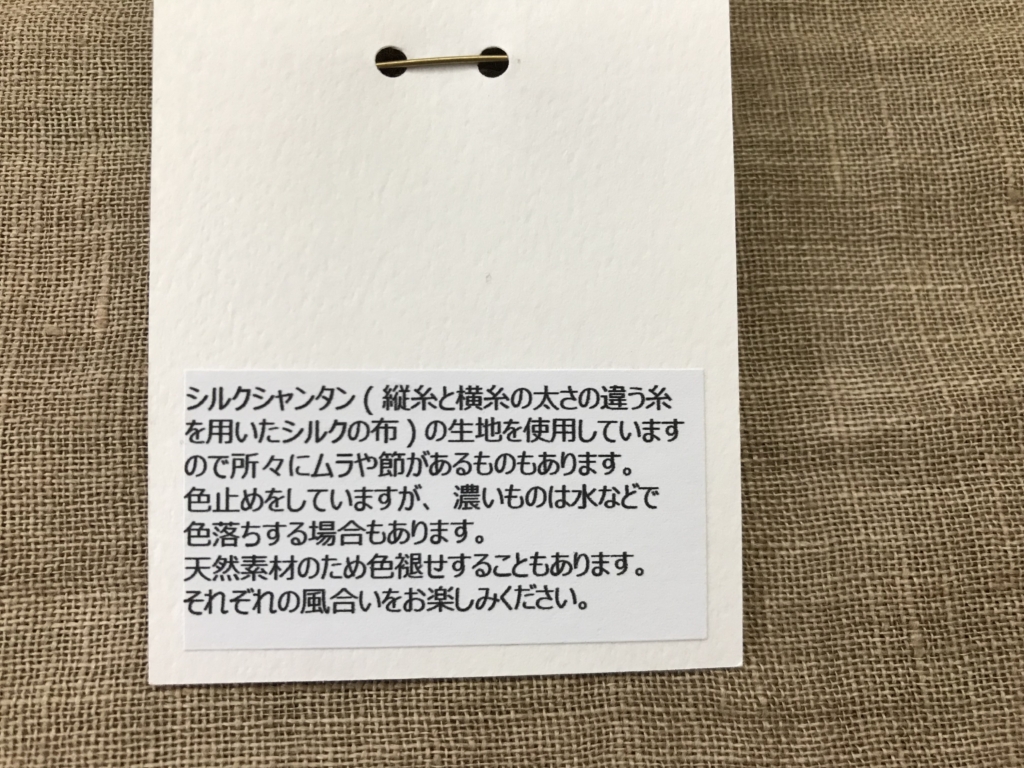 シルクシャンタン ( 縦糸と横糸の太さの違う糸
を用いたシルクの布 ) の生地を使用しています
ので所々にムラや節があるものもあります。
色止めをしていますが、 濃いものは水などで
色落ちする場合もあります。
天然素材のため色褪せすることもあります。
それぞれの風合いをお楽しみください。